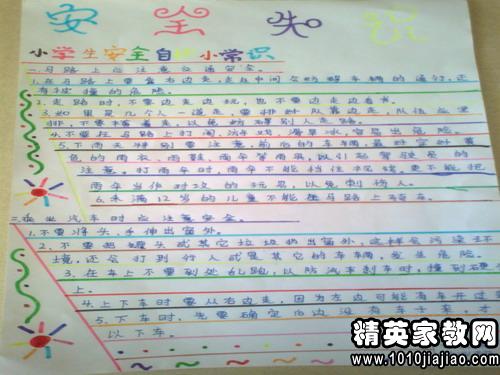 安全知识
小学生安全自护小常识
一.马路上应注意交通安全。
1.在马路上要靠右边走,走在中间会妨碍车辆的通行,还
有被撞的危险。
2.走路时,不要边走边玩,也不要边走边看书。
3.如果是几个人一道走,要排好队靠边走,队伍应里
排,不要横着走,以免妨碍别人走路。
4.不要在马路上打闹、滑冰,容易出危险。
5.下雨天特别要注意,前后的车辆,最好穿鲜黄
色的雨衣、雨鞋,雨伞等雨具,以引起驾驶员的
注意。打雨伞时,雨伞不能挡住视线,更不能把
雨伞当作对攻的玩具,以免刺伤人。
6.未满12岁的儿童不能在马路上骑车。
二.在坐汽车时应注意安全。
1.不要将头、手伸出窗外。
2.不要把罐头或其它垃圾扔出窗外,这样会污染环
境,还会打到行人或其它的车辆,发生危险。
3.在车上不要到处乱跑,以防汽车刹车时,撞到硬
上。
4.上下车时要从右边走,因为左边可能有车开过
5.下车时,先要确定右边没有车子来,才
以下车。
精英家教网
www.1010jiajiao.com